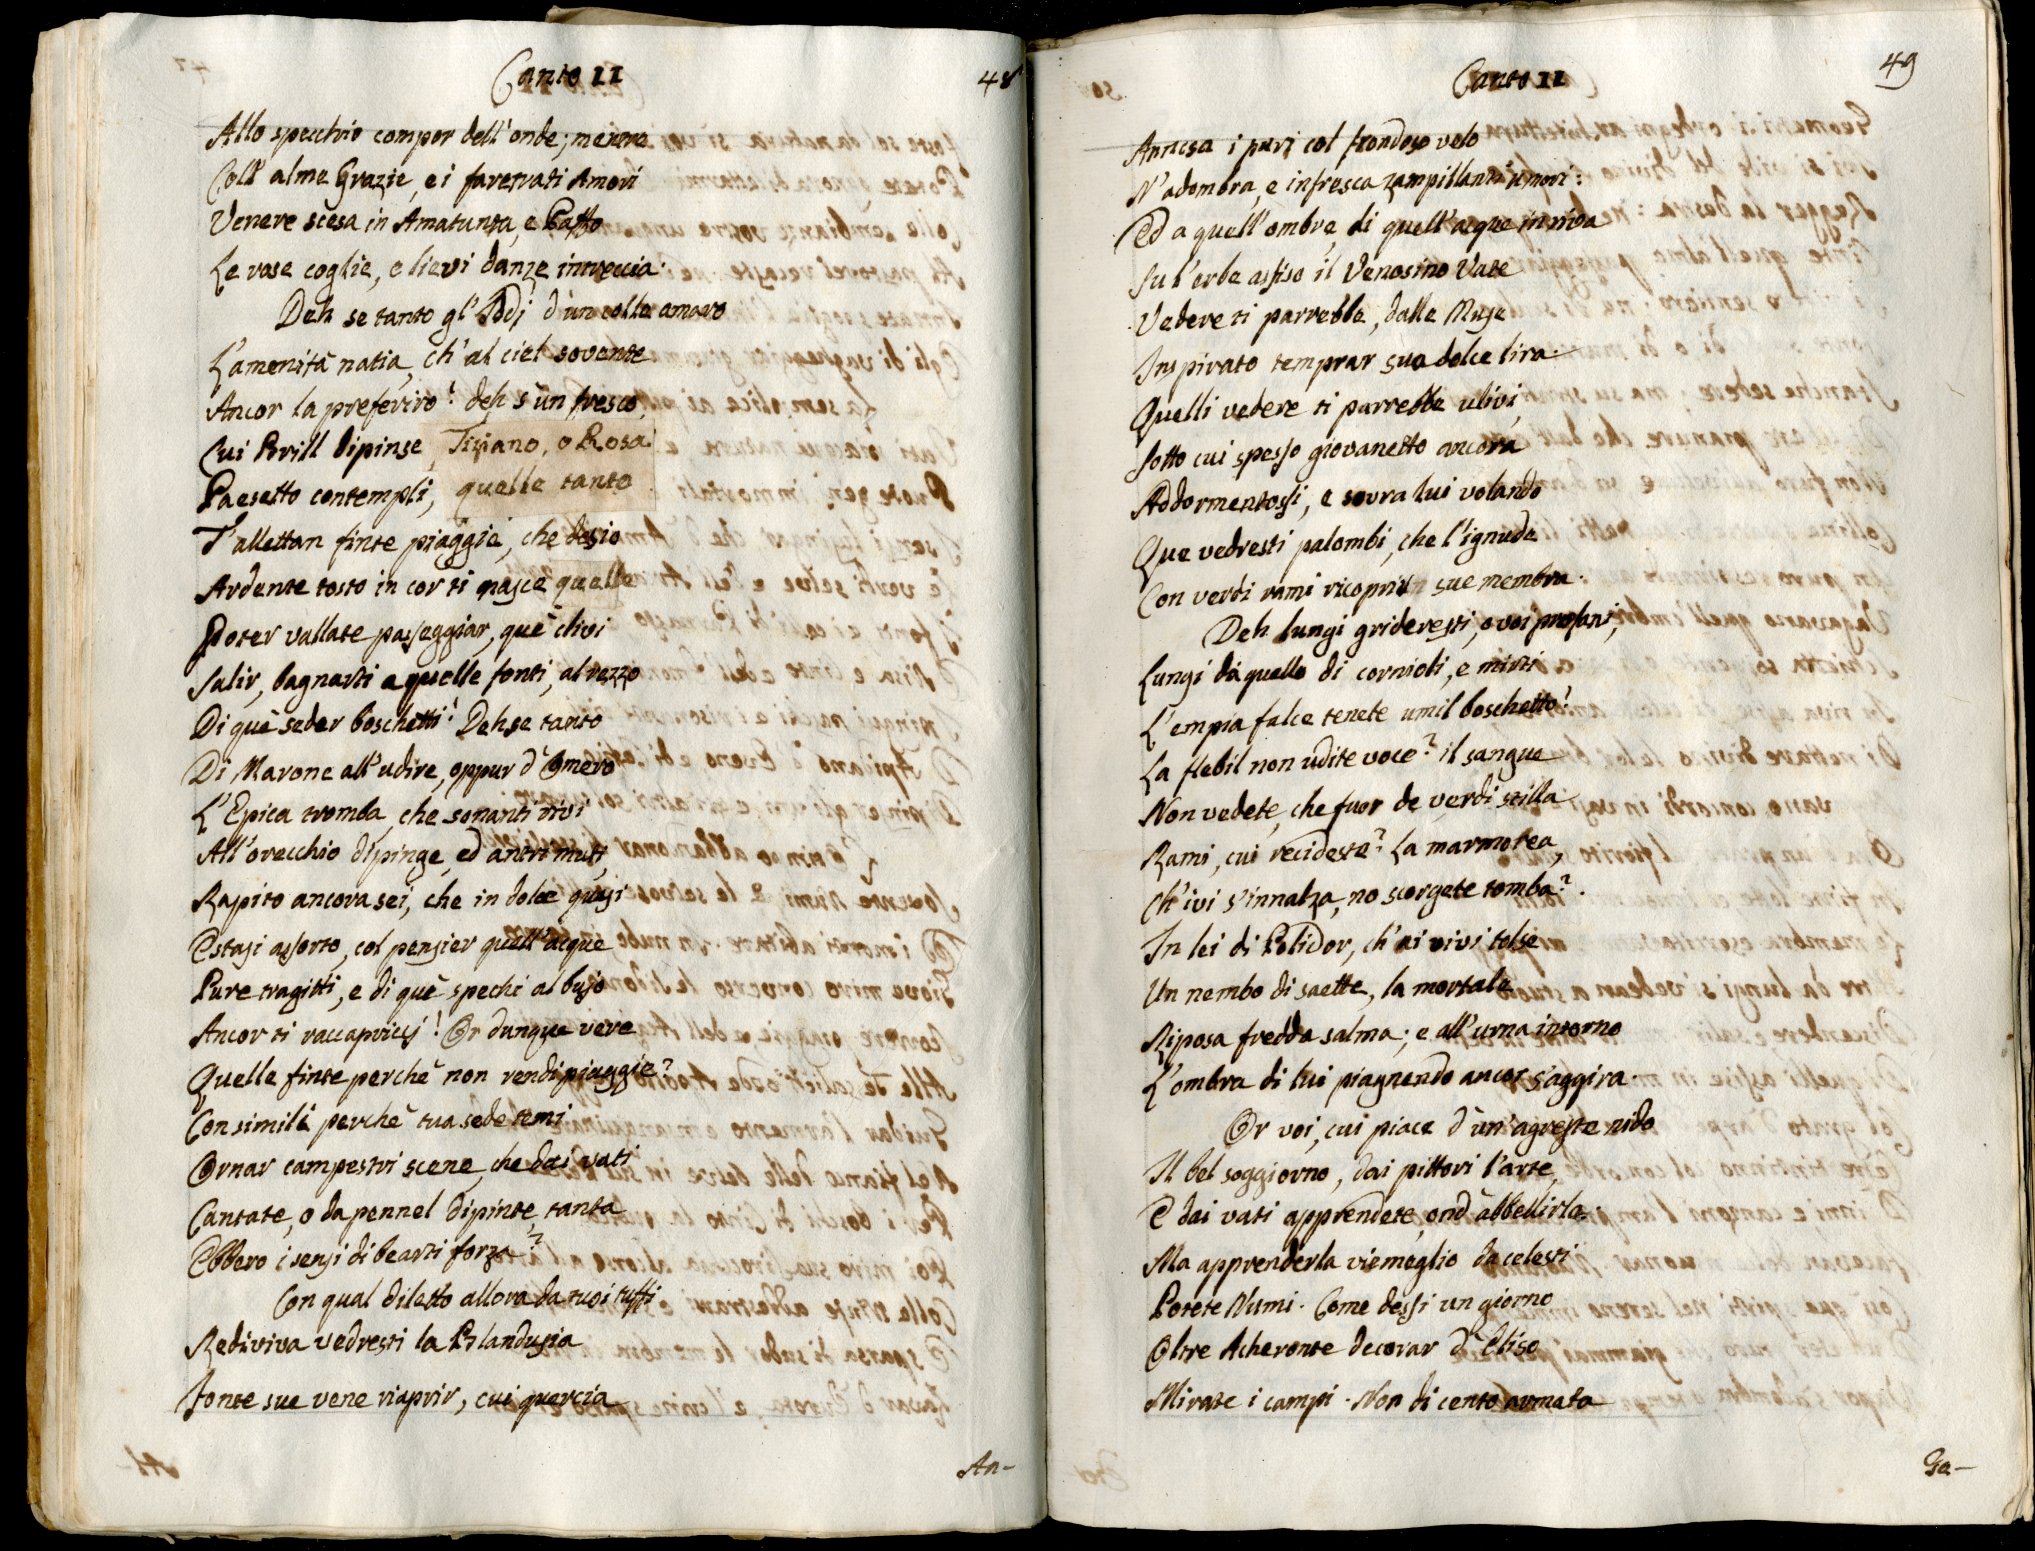 Canto II
48
Allo specchio compor dell'onde; mentre
Coll' alme Grazie, e i faretrati Amori
Venere scesa in Amatunta, e Paffo
Le rose coglie, e lievi danze intreccia.
Deh se tanto gl' Iddj d'un colle amaro
L'amenità natia, ch' al ciel sovente
Ancor la preferiro! deh s'un fresco,
Cui Brill dipinse, Tiziano, o Rosa
Paesetto contempli, quelle tanto
T'allettan finte piaggie, che desio
Ardente tosto in cor ti nasce quelle
Poter vallate passeggiar, què clivi
Salir, bagnarti a quelle fonti, al rezzo
Di què seder boschetti! Deh se tanto
Di Marone all'udire, oppur d'Omero
L'Epica tromba, che sonanti rivi
All'orecchio dipinge, ed antri muti,
Rapito ancora sei, che in dolce quasi
Estasi assorto, col pensier quell'acque
Pure tragitti, e di què spechi al bujo
Ancor ti raccapricij! Or dunque vere
Quelle finte perchè non rendi piaggie?
Consimili perchè tua sede temi
Ornar campestri scene, che dai vati
Cantate, o da pennel dipinte, tanta
Ebbero i sensi di bearti forza?
Con qual diletto allora da tuoi tuffi
Rediviva vedresti la Blandusia
Fonte sue vene riaprir, cui quercia
An-
Canto II
49
Annosa i puri col frondoso velo
N'adombra, e infresca zampillanti umori:
Ed a quell'ombre, di quell'acque in riva
Su l'erbe assiso il Venosino Vate
Vedere ti parrebbe, dalle Muse
Inspirato temprar sua dolce lira.
Quelli vedere ti parrebbe ulivi,
Sotto cui spesso giovanetto ancora
Addormentossi, e sovra lui volando
Que vedresti palombi, che l'ignude
Con verdi rami ricoprir sue membra.
Deh lungi grideresti, o voi profani,
Lungi da quello di cornioli, e mirti
L'empia falce tenete umil boschetto!
La flebil non udite voce? il sangue
Non vedete, che fuor de verdi stilla
Rami, cui recideste? La marmorea,
Ch'ivi s'innalza, no scorgete tomba?
In lei di Polidor, ch'ai vivi tolse
Un nembo di saette, la mortale
Riposa fredda salma; e all'urna intorno
L'ombra di lui piagnendo ancor s'aggira.
Or voi, cui piace d'un'agreste nido
Il bel soggiorno, dai pittori l'arte,
E dai vati apprendete, ond' abbellirlo.
Ma apprenderla viemeglio da celesti
Potete Numi. Come dessi un giorno
Oltre Acheronte decorar d'Eliso
Mirate i campi. Non di cento armata